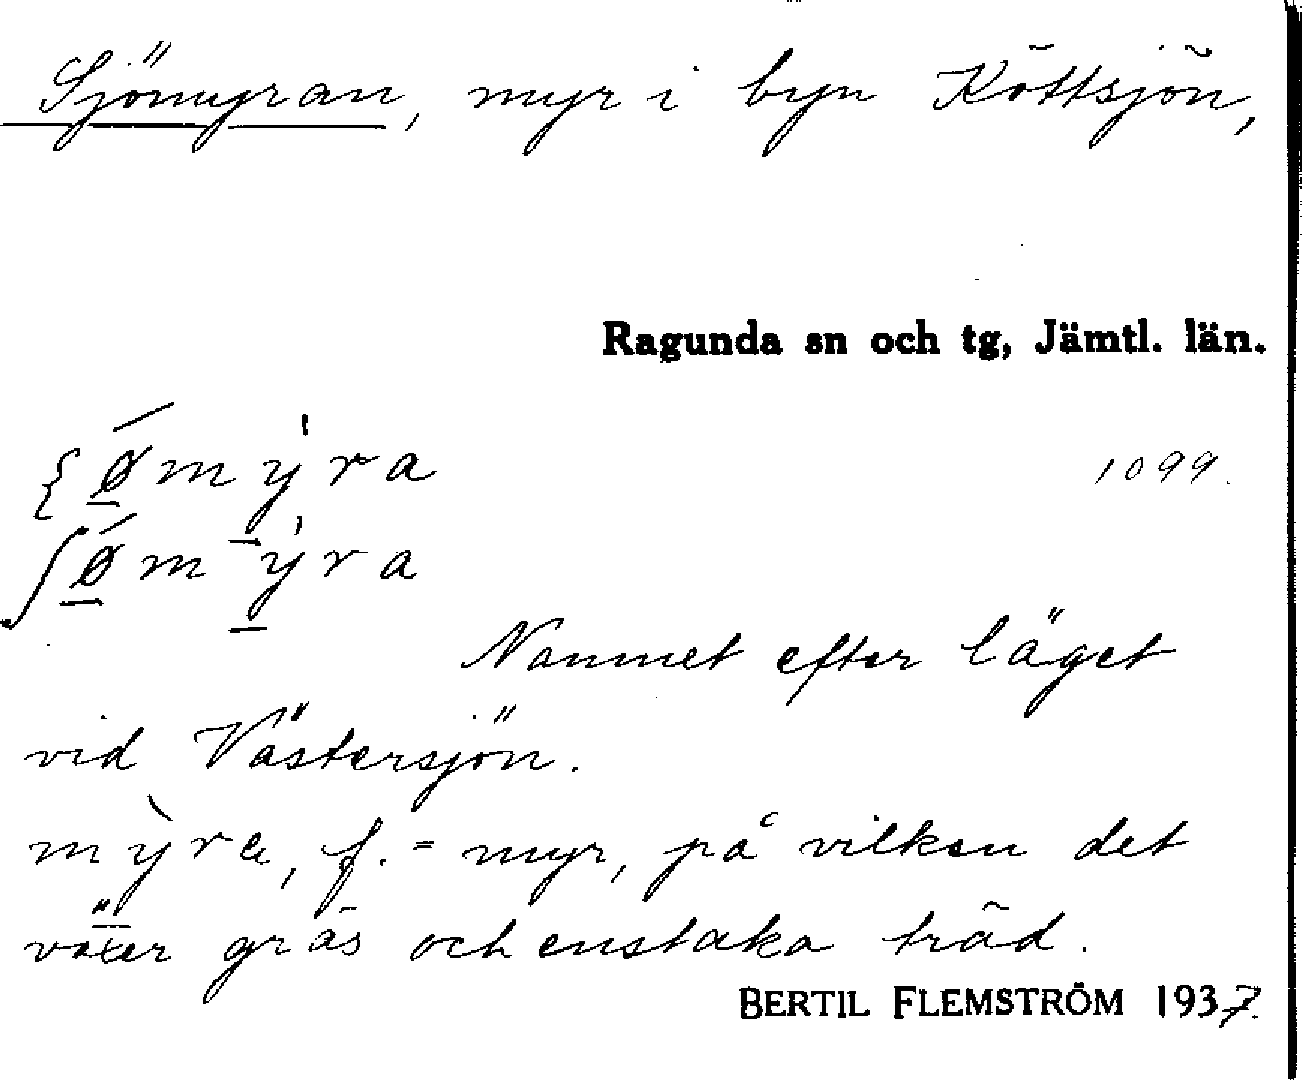 Sjömyran, myr i byn Köttsjön,
Ragunda sn och tg, Jämtl. län.
{ǿ̱mẏ̱ra
1099.
ʃǿ̱mẏ̱ra
Namnet efter läget
vid Västersjön.
mỳra, f. = myr, på vilken det
växer gräs och enstaka träd.
BERTIL FLEMSTRÖM 1937.